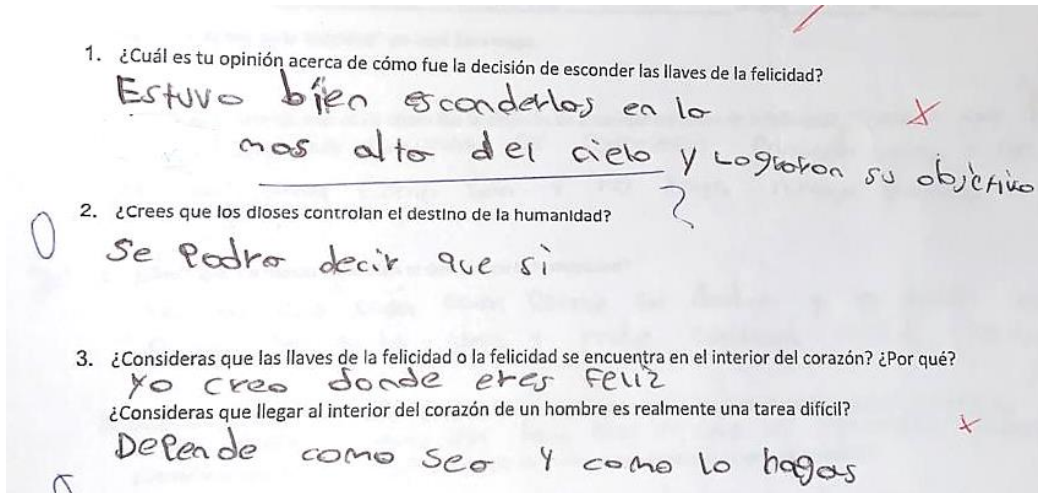 1. ¿Cuál es tu opinión acerca de cómo fue la decisión de esconder las llaves de la felicidad?
Estuvo bien esconderlas en lo
mas alto del cielo y Lograron su objetivo
?
2. ¿Crees que los dioses controlan el destino de la humanidad?
0
Se Podra decir que si
3. ¿Consideras que las llaves de la felicidad o la felicidad se encuentra en el interior del corazón? ¿Por qué?
Yo creo donde eres Feliz
¿Consideras que llegar al interior del corazón de un hombre es realmente una tarea difícil?
Depende como sea Y como lo hagas